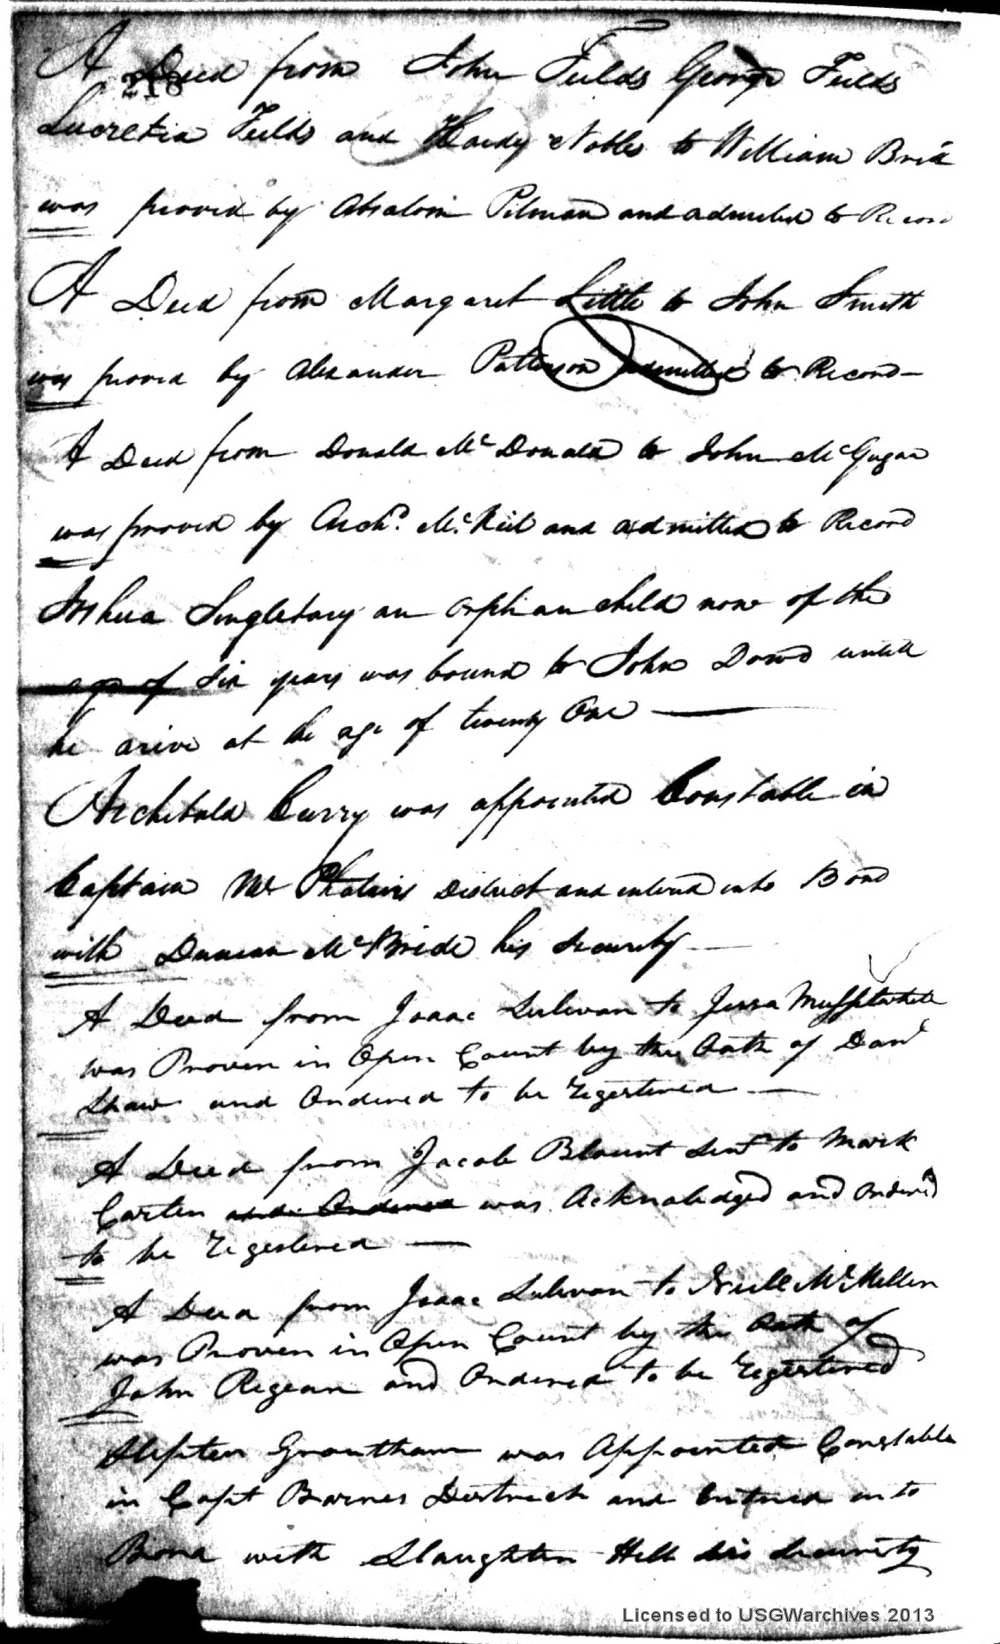 218
A Deed from John Fields George Fields
Lucretia Fields and Hardy Nobles to William Brià
was proved by Absalom Pitman and admitted to Record
A Deed from Margaret Little to John Smith
was proved by Alexander Patterson admitted to Record
A Deed from Donald McDonald to John McGugan
was proved by Archd. McNeil and admitted to Record
Joshua Singletary an orphan child now of the
age of Six years was bound to John Dowd untill
he arive at the age of twenty One
Archibald Curry was appointed Constable in
Captain District and entered into Bond
with Duncan McBride his Security
A Deed from Isaac Sulivan to Jessa
was Proven in Open Court by the Oath of Danl
Shaw and Ordered to be Regestered
A Deed from Jacob Blount Senr to Mark
Carter and Ordered was Acknoledged and Ordered
to be Regestered
A Deed from Isaac Sulivan to Neill McMillen
was Proven in Open Court by the Oath of
John Regean and Ordered to be Regestered
Stepten Grantham was Appointed Constable
in Capt Barnes Destrect and Entred into
Bond with Slaughter Hill his Security
Licensed to USGWarchives 2013